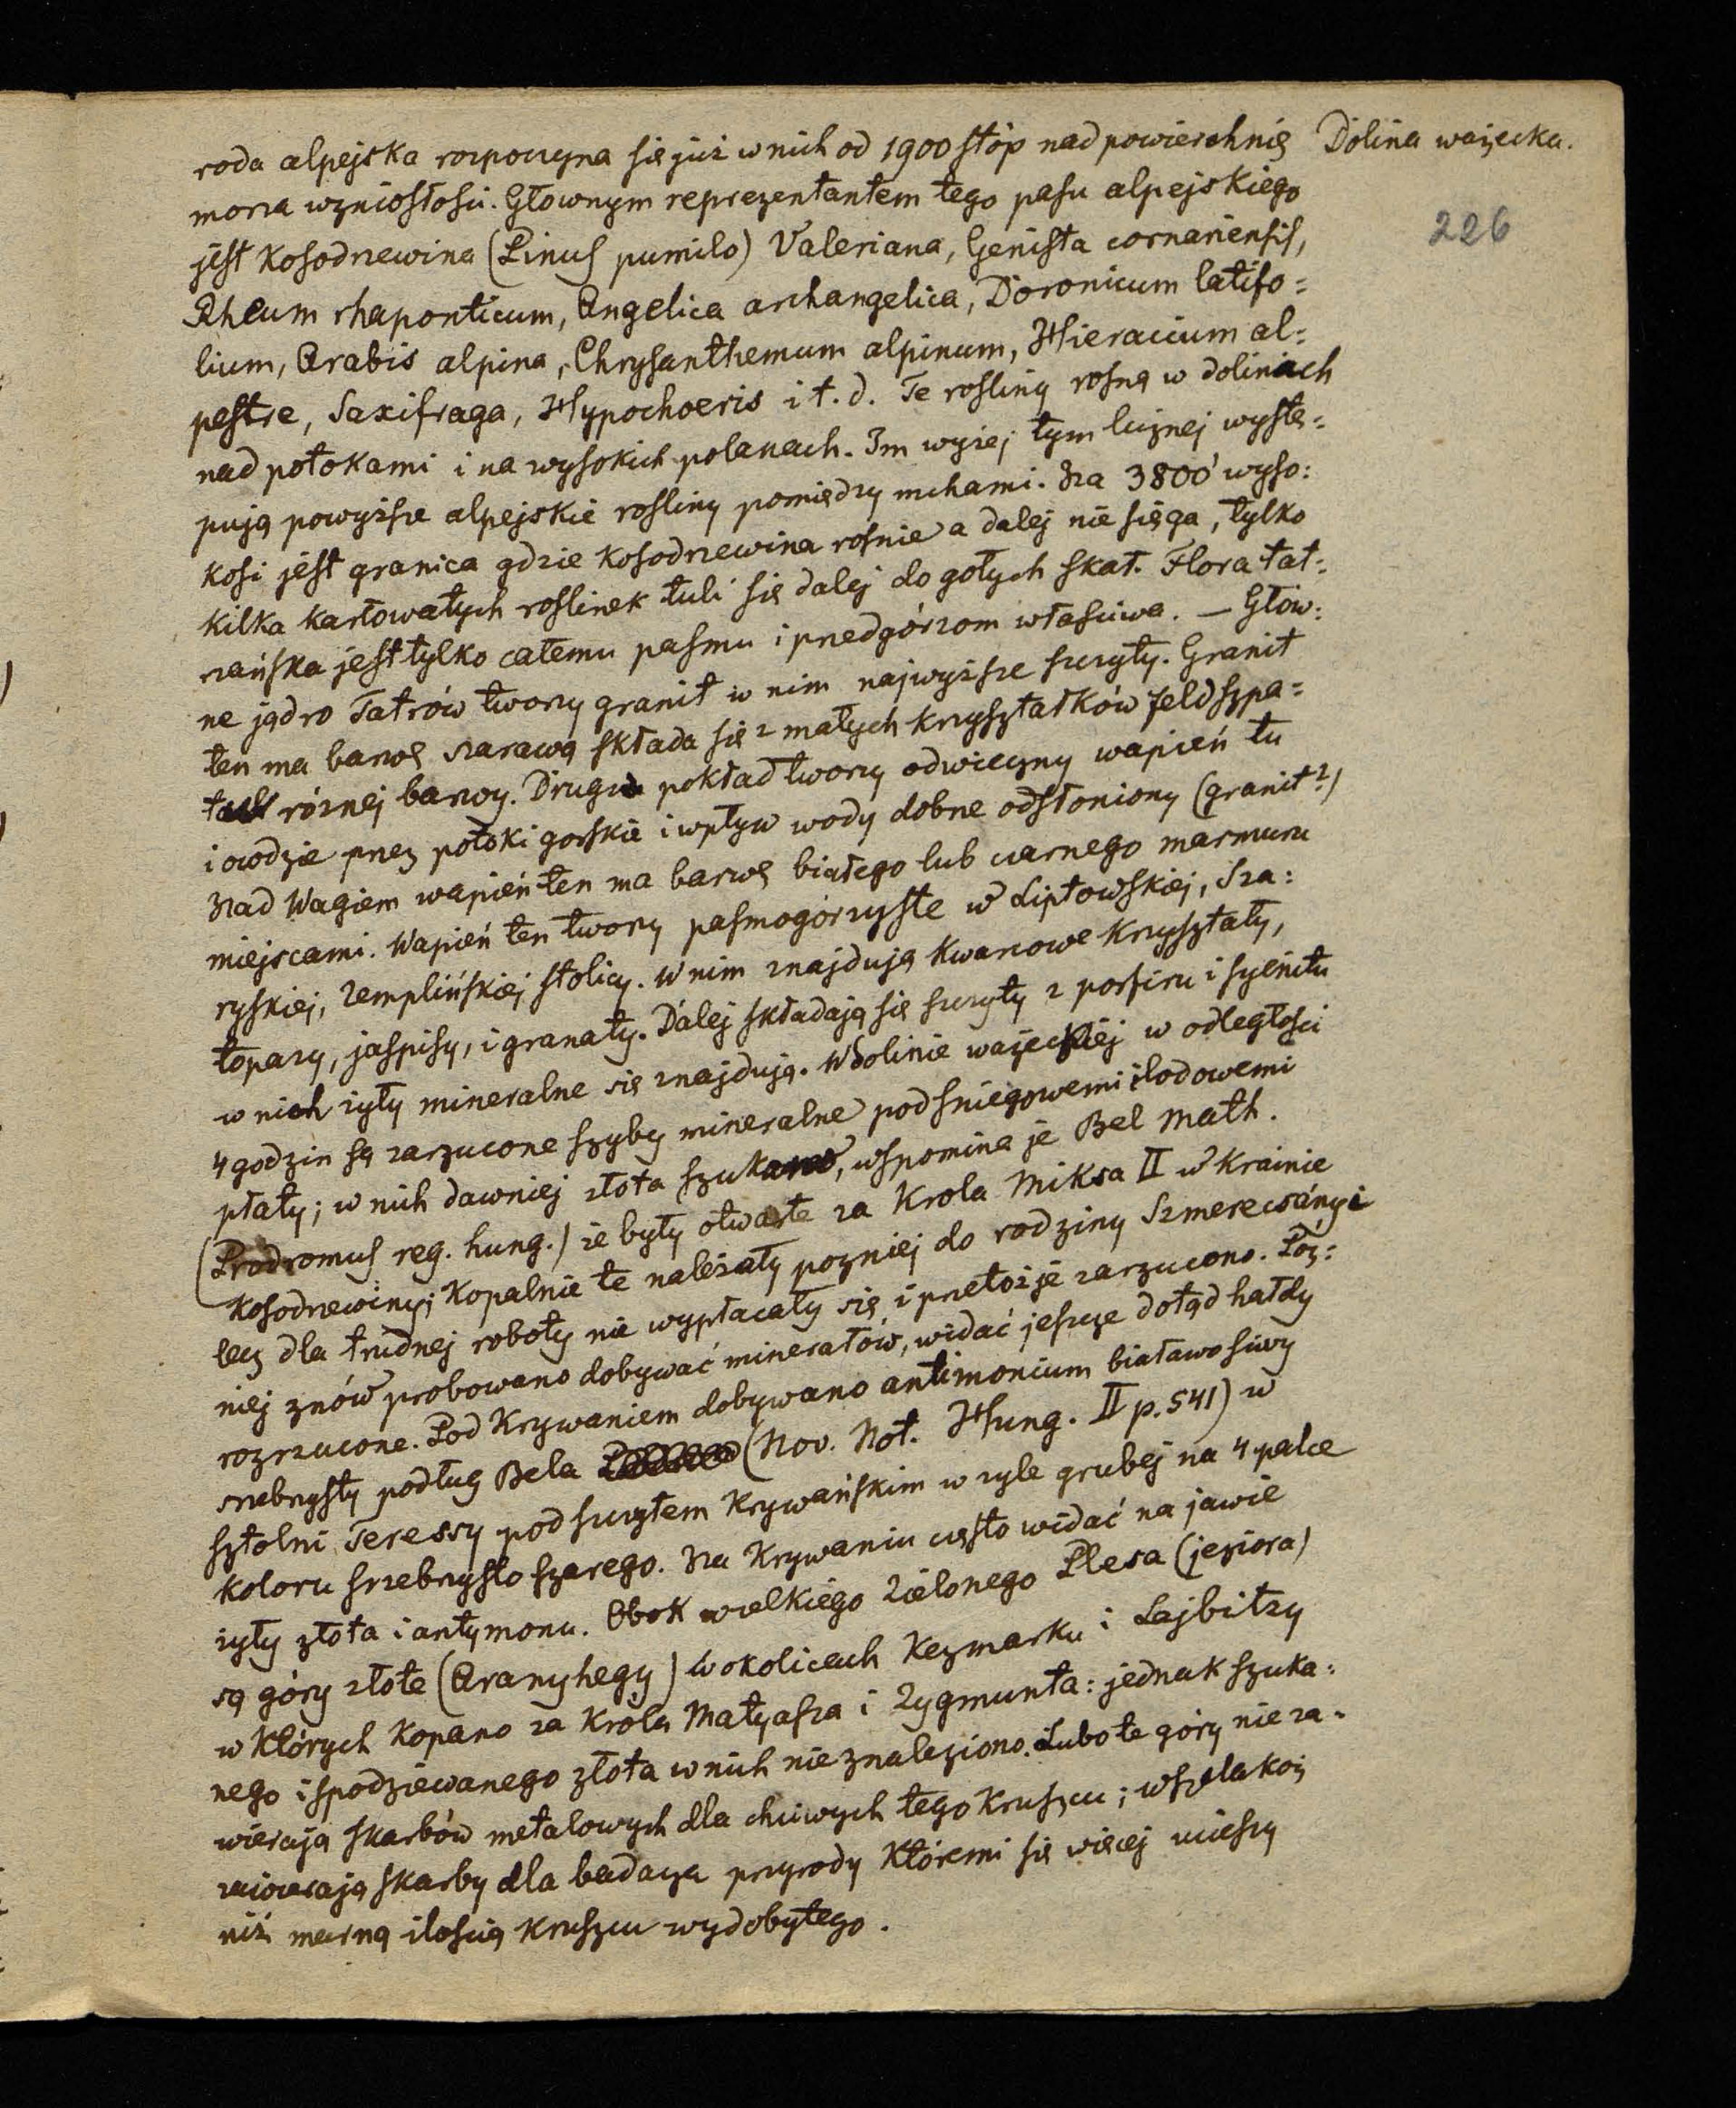 roda alpejska rozpoczyna się już w nich od 1900 stóp nad powierzchnię
Dolina ważecka.
morza wzniosłości. Głownym reprezentantem tego pasu alpejskiego
226
jest Kosodrzewina (Pinus pumilo) Valeriana, Genista cornariensis,
Rheum rhaponticum, Angelica archangelica, Doronicum latifo=
lium, Arabis alpina, Chrysanthemum alpinum, Hieracium al=
pestre, Saxifraga, Hypochoeris i t. d. Te rosliny rosną w dolinach
nad potokami i na wysokich polanach. Im wyżej tym licznej wystę=
pują powyższe alpejskie rosliny pomiędzy mchami. Na 3800' wyso=
kosi jest granica gdzie Kosodrzewina rosnie a dalej nie sięga, tylko
kilka karłowatych roslinek tuli się dalej do gołych skał. Flora tat=
rzańska jest tylko całemu pasmu i przedgórzom własciwa. — Głów=
ne jądro Tatrów tworzy granit w nim najwyższe szczyty. Granit
ten ma barwę szarawą składa się z małych kryształków feldszpa=
różnej barwy. Drugi pokład tworzy odwieczny wapień tu
i owdzie przez potoki gorskie i wpływ wody dobrze odsłoniony (granit?)
Nad Wagiem wapień ten ma barwę białego lub czarnego marmuru
miejscami. Wapień ten tworzy pasmogórzyste w Liptowskiej, Sza=
ryskiej, Zemplińskiej stolicy. W nim znajdują Kwarcowe Kryształy,
topazy, jaspisy, i granaty. Dalej składają się szczyty z porfiru i syenitu
w nich żyły mineralne się znajdują. W dolinie ważeckiej w odległości
4 godzin są zarzucone szyby mineralne pod sniegowemi i lodowemi
płaty; w nich dawniej złota szukano, wspomina je Bel Math.
(Prodromus reg. hung.) że były otwarte za Krola Miksa II w Krainie
Kosodrzewiny; Kopalnie te należały pozniej do rodziny Szmerecsányi
lecz dla trudnej roboty nie wypłacały się i przetoż je zarzucono. Póz=
niej znów probowano dobywać minerałów, widać jeszcze dotąd hałdy
rozrzucone. Pod Krywaniem dobywano antimonium białawo siwy
srebrzysty podług Bela (Nov. Not. Hung. II p. 541) w
sztolni Teressy pod szczytem Krywańskim w żyle grubej na 4 palce
koloru srzebrzysto szarego. Na Krywaniu często widać na jawie
żyły złota i antymonu. Obok wielkiego Zielonego Plesa (jeziora)
są góry złote (Aranyhegy) w okolicach Kezmarku i Lajbitzy
w których Kopano za Króla Matyasza i Zygmunta: jednak szuka=
nego i spodziewanego złota w nich nie znaleziono. Lubo te góry nie za=
wierają skarbów metalowych dla chciwych tego Kruszcu; wszelakoż
zawierają skarby dla badacza przyrody któremi się więcej cieszy
niż marną iloscią Kruszcu wydobytego.